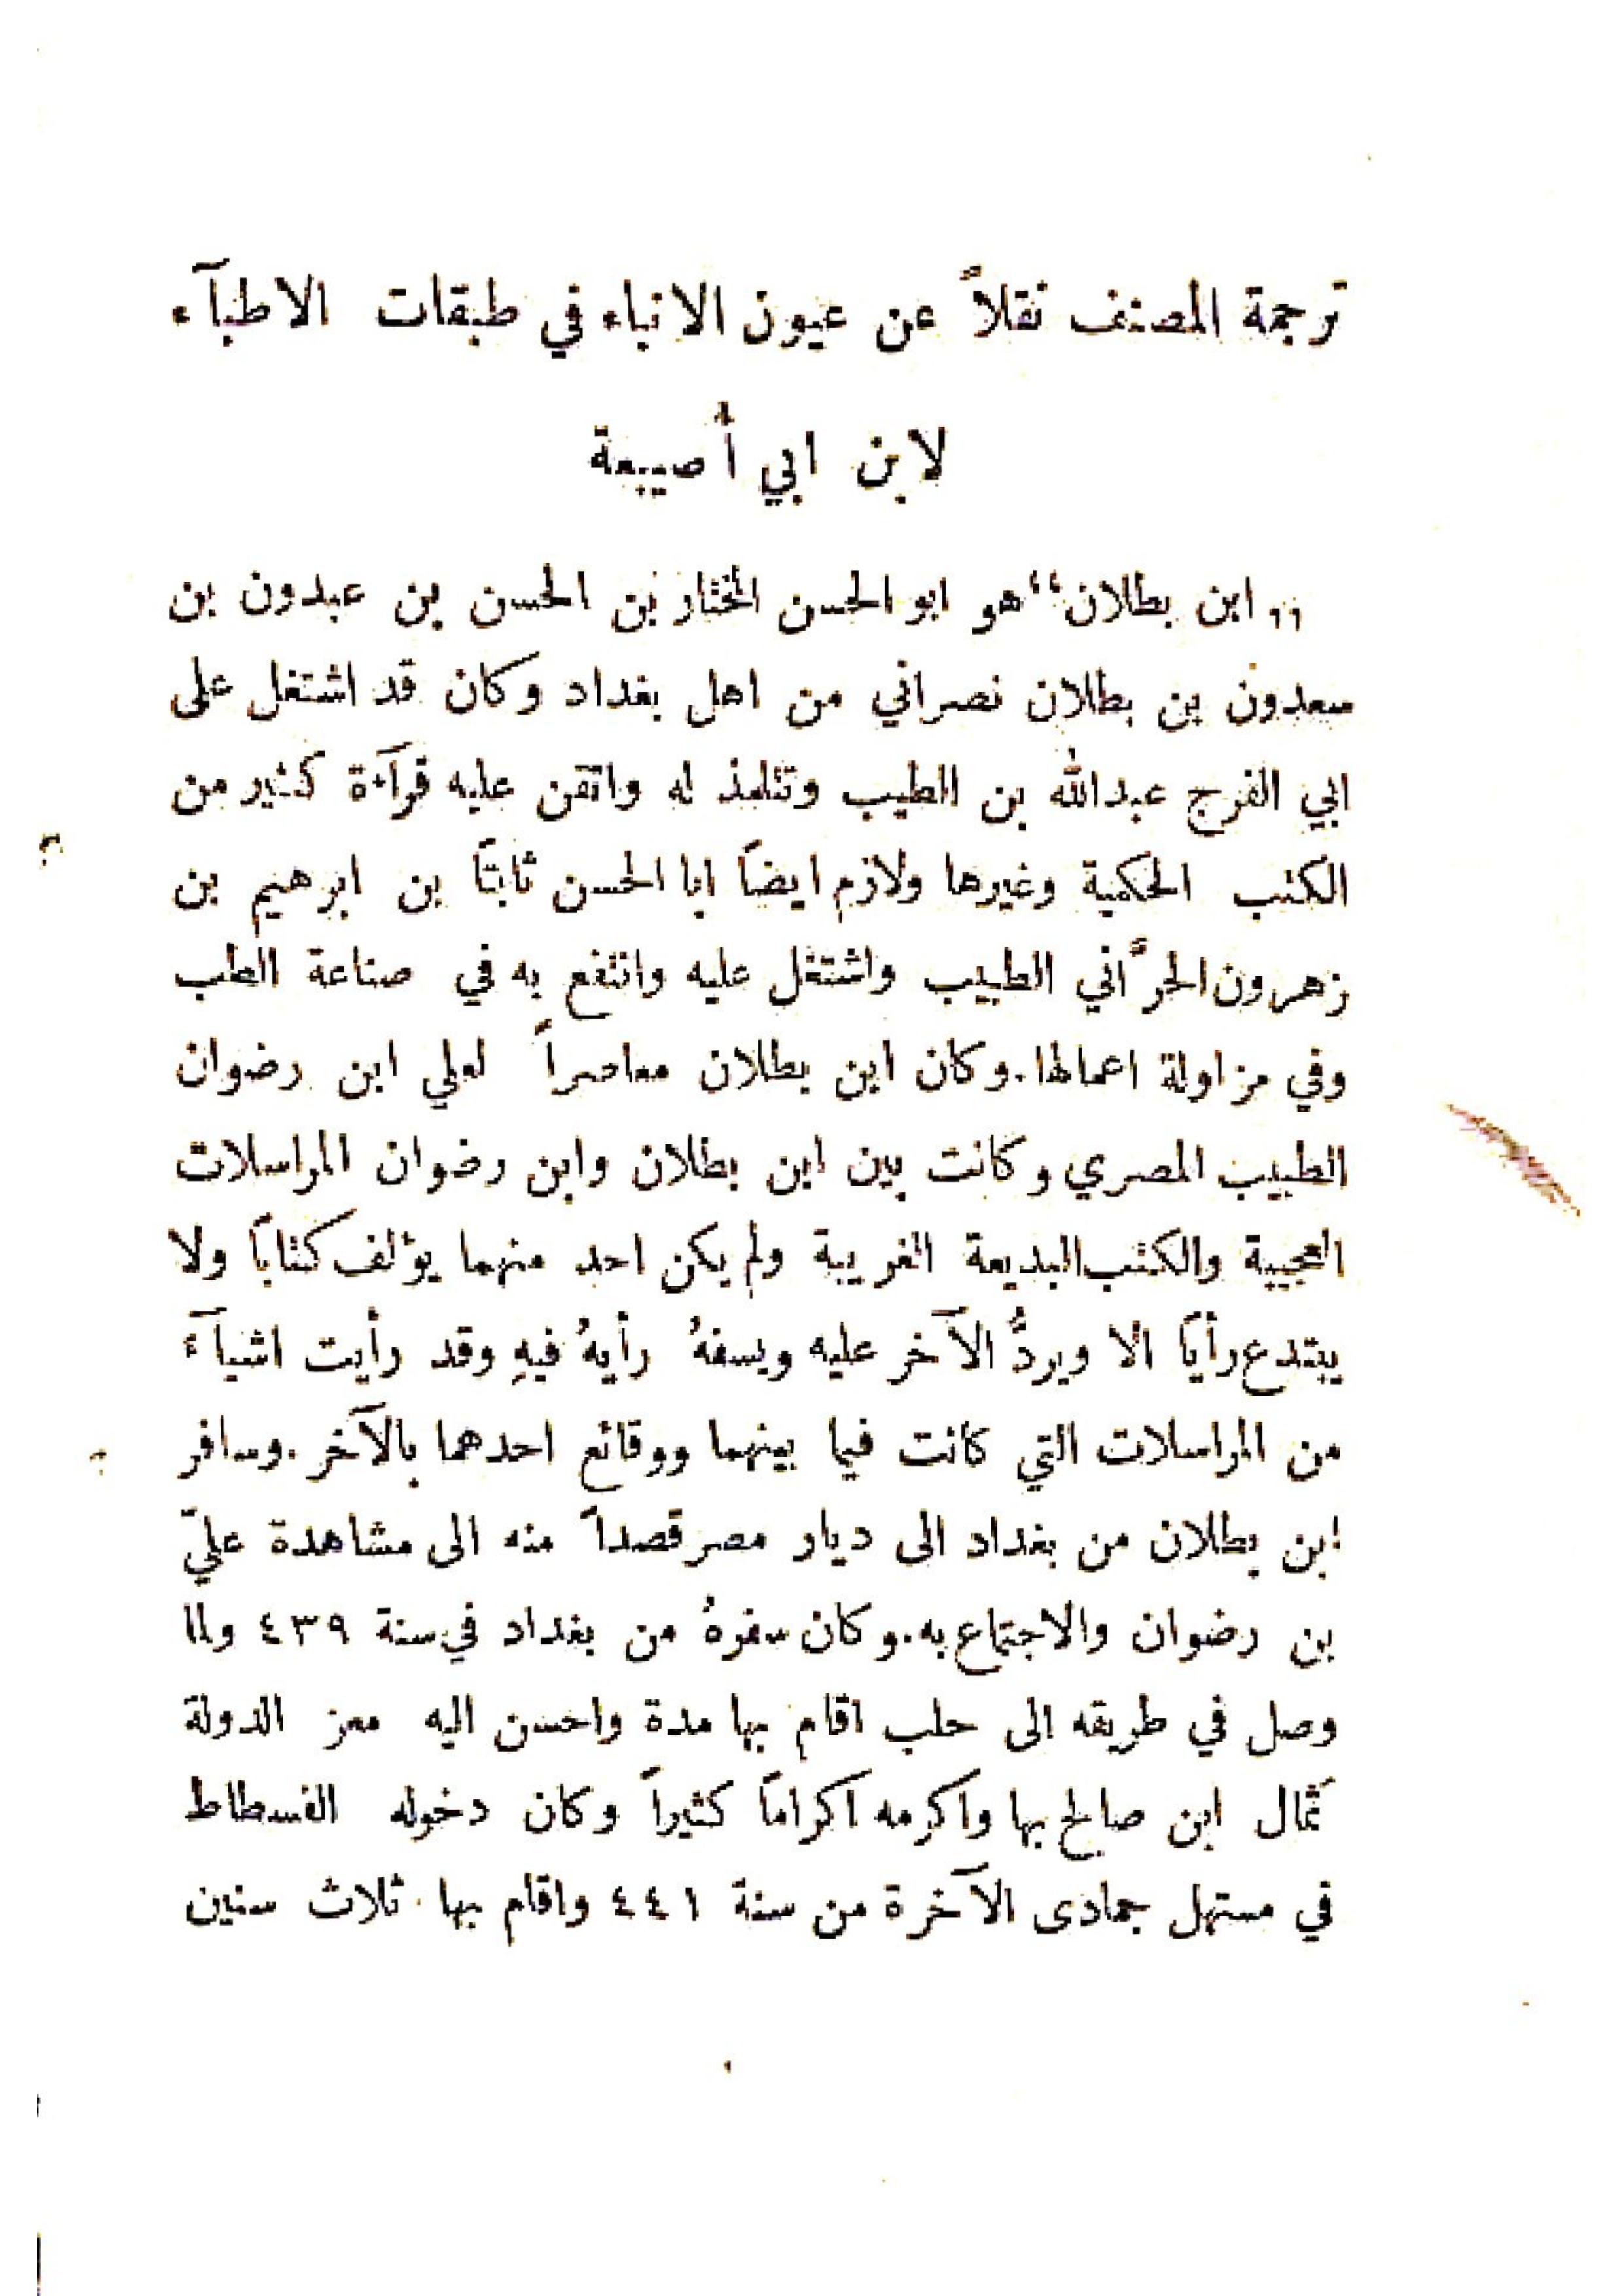 ترجمة المصنف نقلاً عن عيون الانباء في طبقات الاطبآء
لابن ابي أُصيبعة
,, ابن بطلان“ هو ابو الحسن المختار بن الحسن بن عبدون بن
سعدون بن بطلان نصراني من اهل بغداد وكان قد اشتغل على
ابي الفرج عبدالله بن الطيب وتتلمذ له واتقن عليه قرآءة كثير من
الكتب الحكمية وغيرها ولازم ايضاً ابا الحسن ثابتاً بن ابرهيم بن
زهرون الحرَّاني الطبيب واشتغل عليه وانتفع به في صناعة الطب
وفي مزاولة اعمالها. وكان ابن بطلان معاصراً لعلي ابن رضوان
الطبيب المصري وكانت بين ابن بطلان وابن رضوان المراسلات
العجيبة والكتب البديعة الغريبة ولم يكن احد منهما يؤلف كتاباً ولا
يبتدع رأياً الا ويردُّ الآخر عليه ويسفهُ رأيهُ فيهِ وقد رأيت اشيآء
من المراسلات التي كانت فيما بينهما ووقائع احدهما بالآخر. وسافر
ابن بطلان من بغداد الى ديار مصر قصداً منه الى مشاهدة عليّ
بن رضوان والاجتماع به. وكان سفرهُ من بغداد في سنة ٤٣٩ ولما
وصل في طريقه الى حلب اقام بها مدة واحسن اليه معز الدولة
ثمال ابن صالح بها واكرمه اكراماً كثيراً وكان دخوله الفسطاط
في مستهل جمادى الآخرة من سنة ٤٤١ واقام بها ثلاث سنين